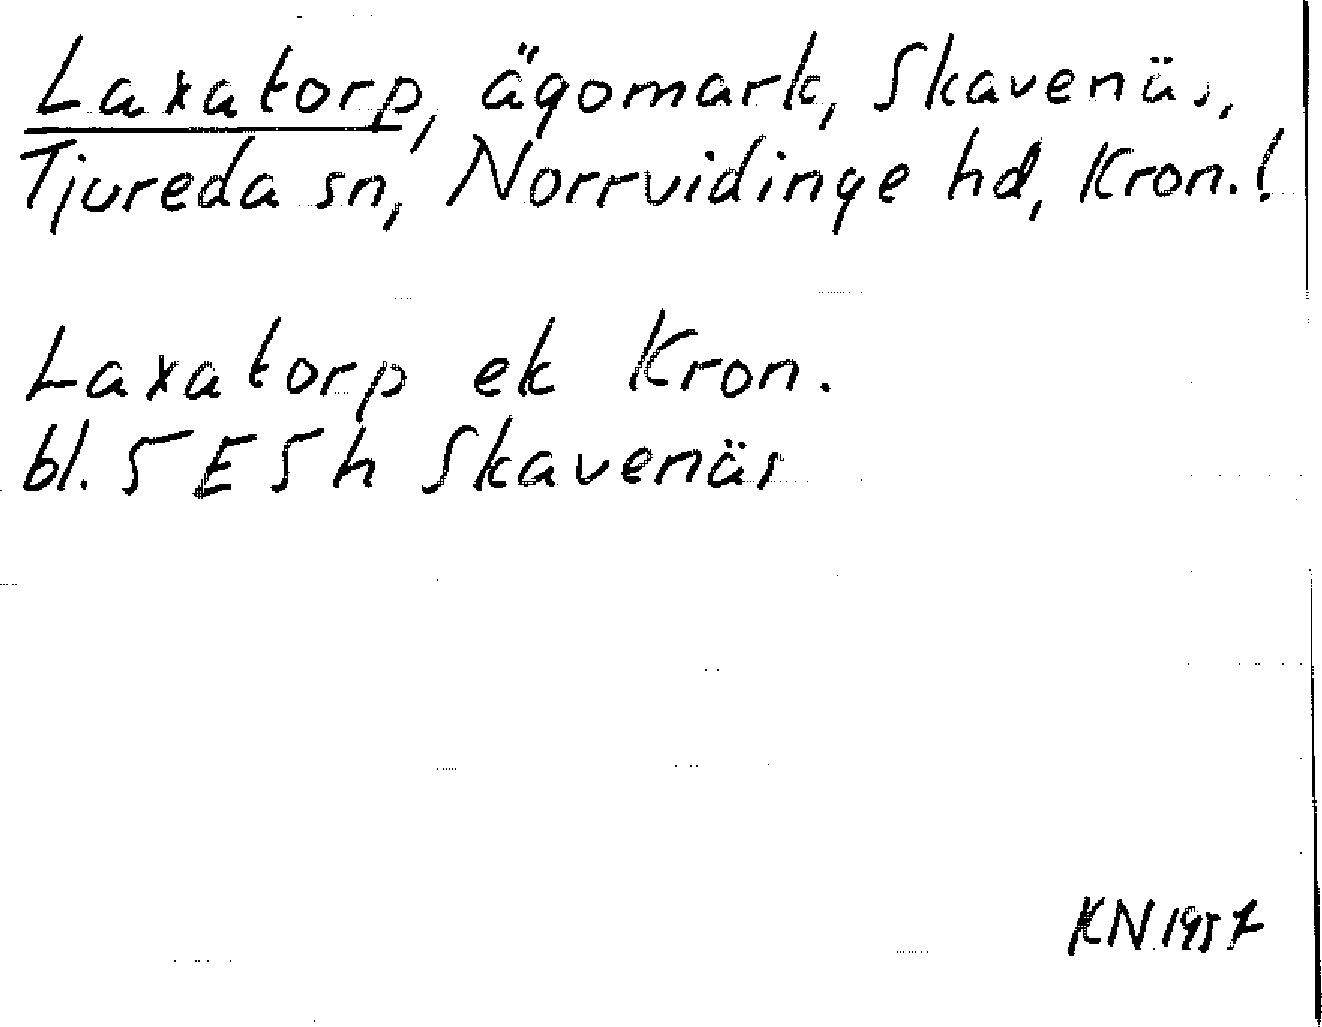 Laxatorp, ägomark, Skavenäs,
Tjureda sn, Norrvidinge hd, Kron.!
Laxatorp ek Kron.
bl. 5E5h Skavenäs
KN 1957